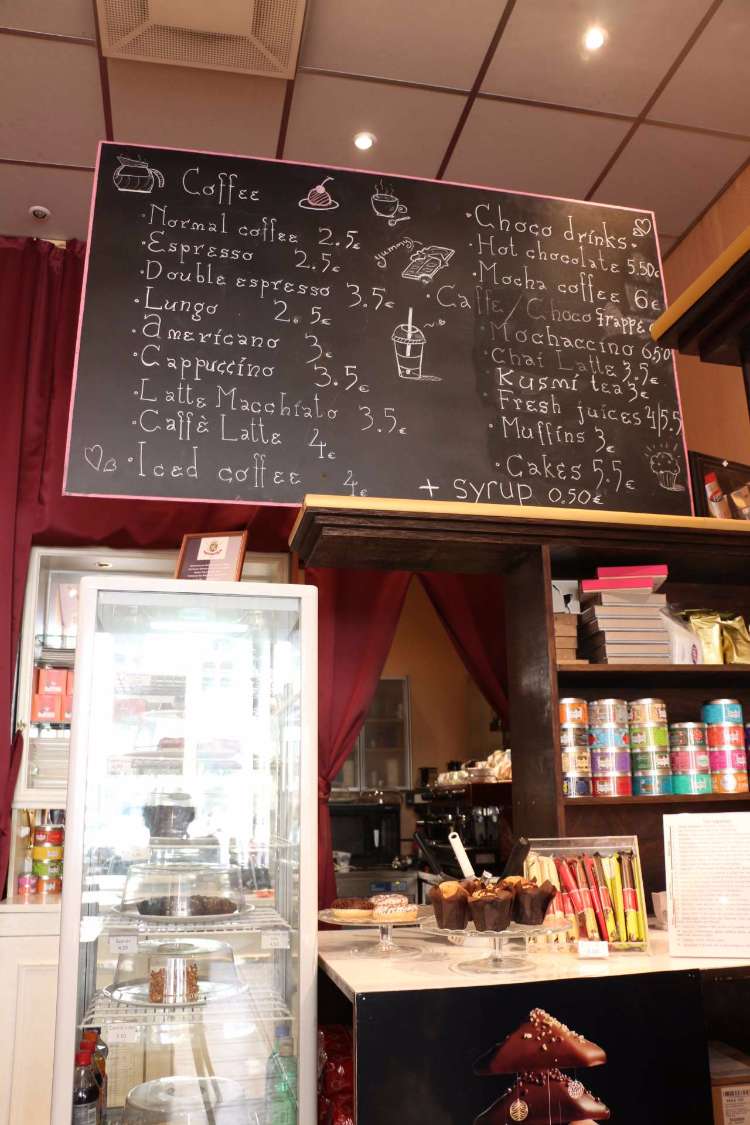 Coffee
• Normal coffee 2.5€
• Espresso 2.5€
• Double espresso 3.5€
• Lungo 2.5€
• Americano 3€
• Cappuccino 3.5€
• Latte Macchiato 3.5€
• Caffè Latte 4€
• Iced coffee 4€
yummy
• Choco drinks •
• Hot chocolate 5.50€
• Mocha coffee 6€
• Caffe / Choco frappe
• Mochaccino 6.50
• Chai Latte 3.5€
• Kusmi tea 3€
• Fresh juices 4/5.5
• Muffins 3€
• Cakes 5.5€
+ syrup 0.50€